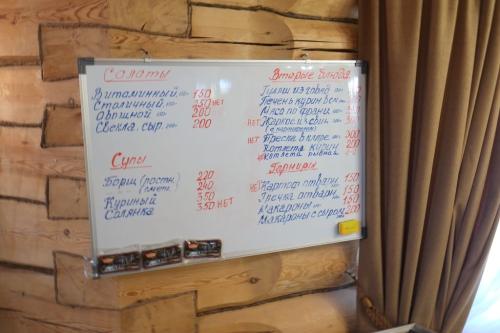 Салаты
Витаминный 150
Столичный 250 нет
Овощной 200
Свекла. сыр. 200
Супы
Борщ (постн. 220
смет. 240
Куриный 350
Солянка 350 нет
Вторые блюда
Гуляш из говяд
Печень курин
Мясо по франц
нет Жаркое из свин.
Треска в кляре 300
Котлета курин 200
Котлета рыбная
Гарниры
нет Картоф отварн 150
Гречка отварн 150
Макароны 150
Макароны с сыром 200